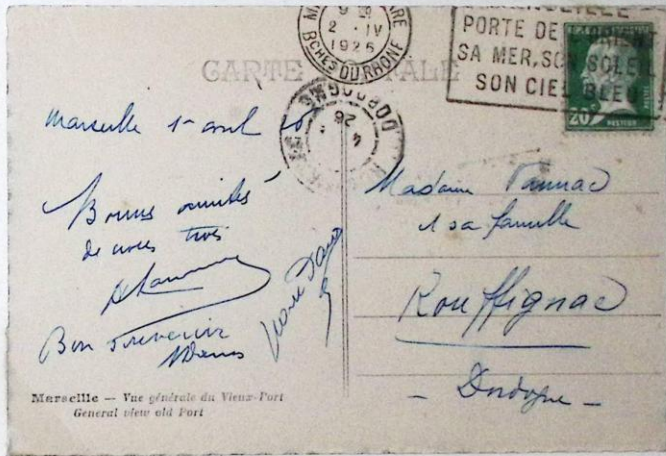 CARTE POSTALE
2 - IV
1926
BCHES DU RHONE
PORTE DE L'ORIENT
SA MER, SON SOLEIL
SON CIEL BLEU
20
PASTEUR
DORDOGNE
4
26
Marseille 1er avril 26
Bonnes amitiés
de nous trois
Bon souvenir
Madame
& sa famille
Rouffignac
- Dordogne -
Marseille — Vue générale du Vieux-Port
General view old Port